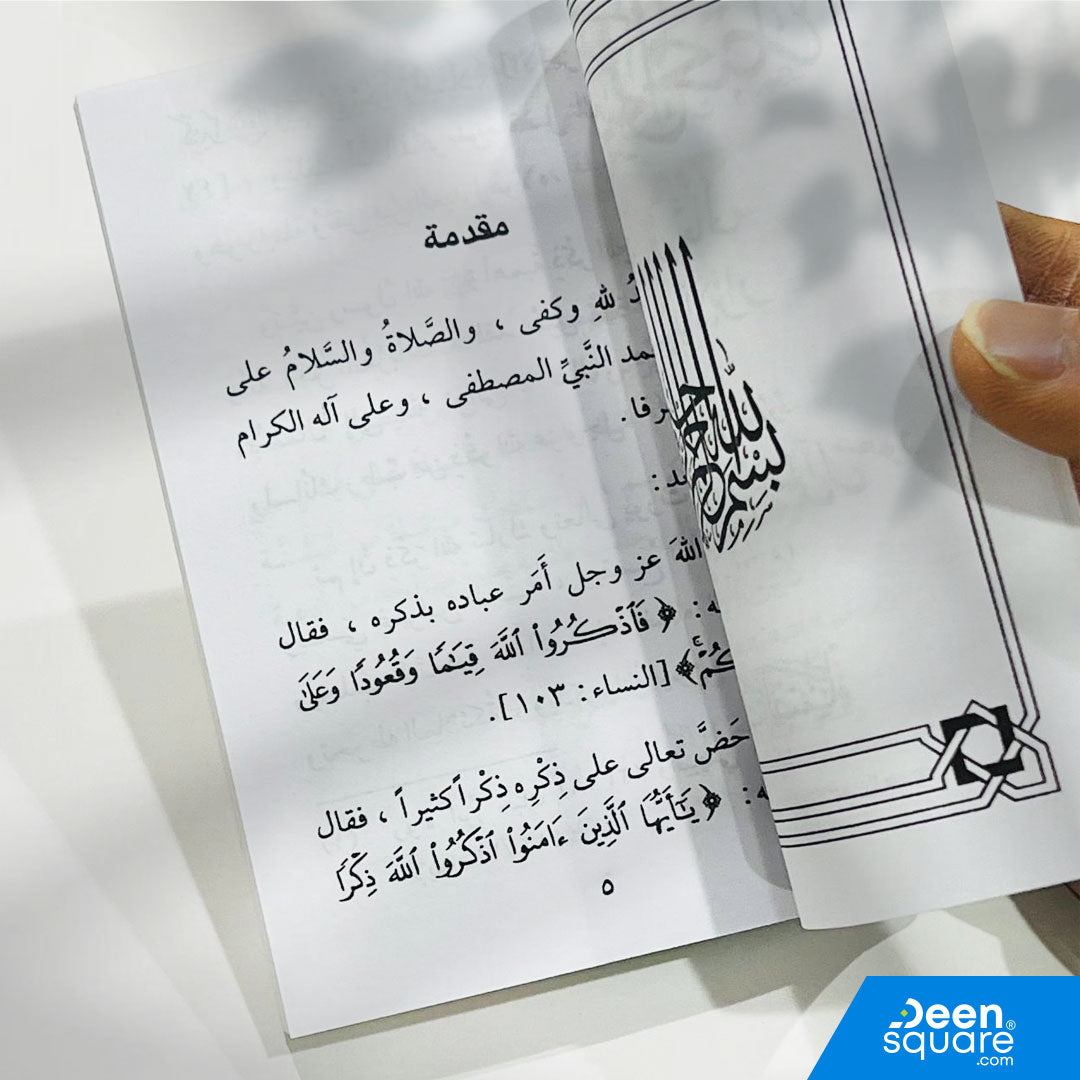 مقدمة
لله وكفى ، والصَّلاةُ والسَّلامُ على
النَّبيِّ المصطفى ، وعلى آله الكرام
اللهَ عز وجل أَمَر عباده بذكره ، فقال
﴿ فَٱذۡكُرُواْ ٱللَّهَ قِيَٰمٗا وَقُعُودٗا وَعَلَىٰ
﴾ [النساء : ١٠٣].
حَضَّ تعالى على ذِكْرِه ذِكْراً كثيراً ، فقال
﴿ يَٰٓأَيُّهَا ٱلَّذِينَ ءَامَنُواْ ٱذۡكُرُواْ ٱللَّهَ ذِكۡرٗا
٥
بسم الله الرحمن الرحيم
Deen®
square
.com